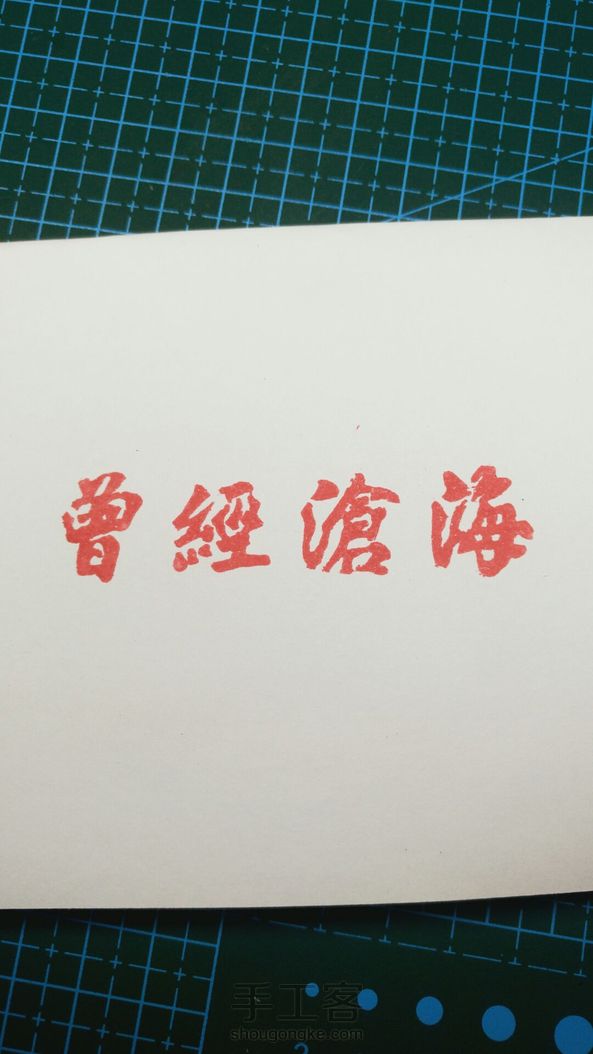 曾經滄海
手工客
shougongke.com